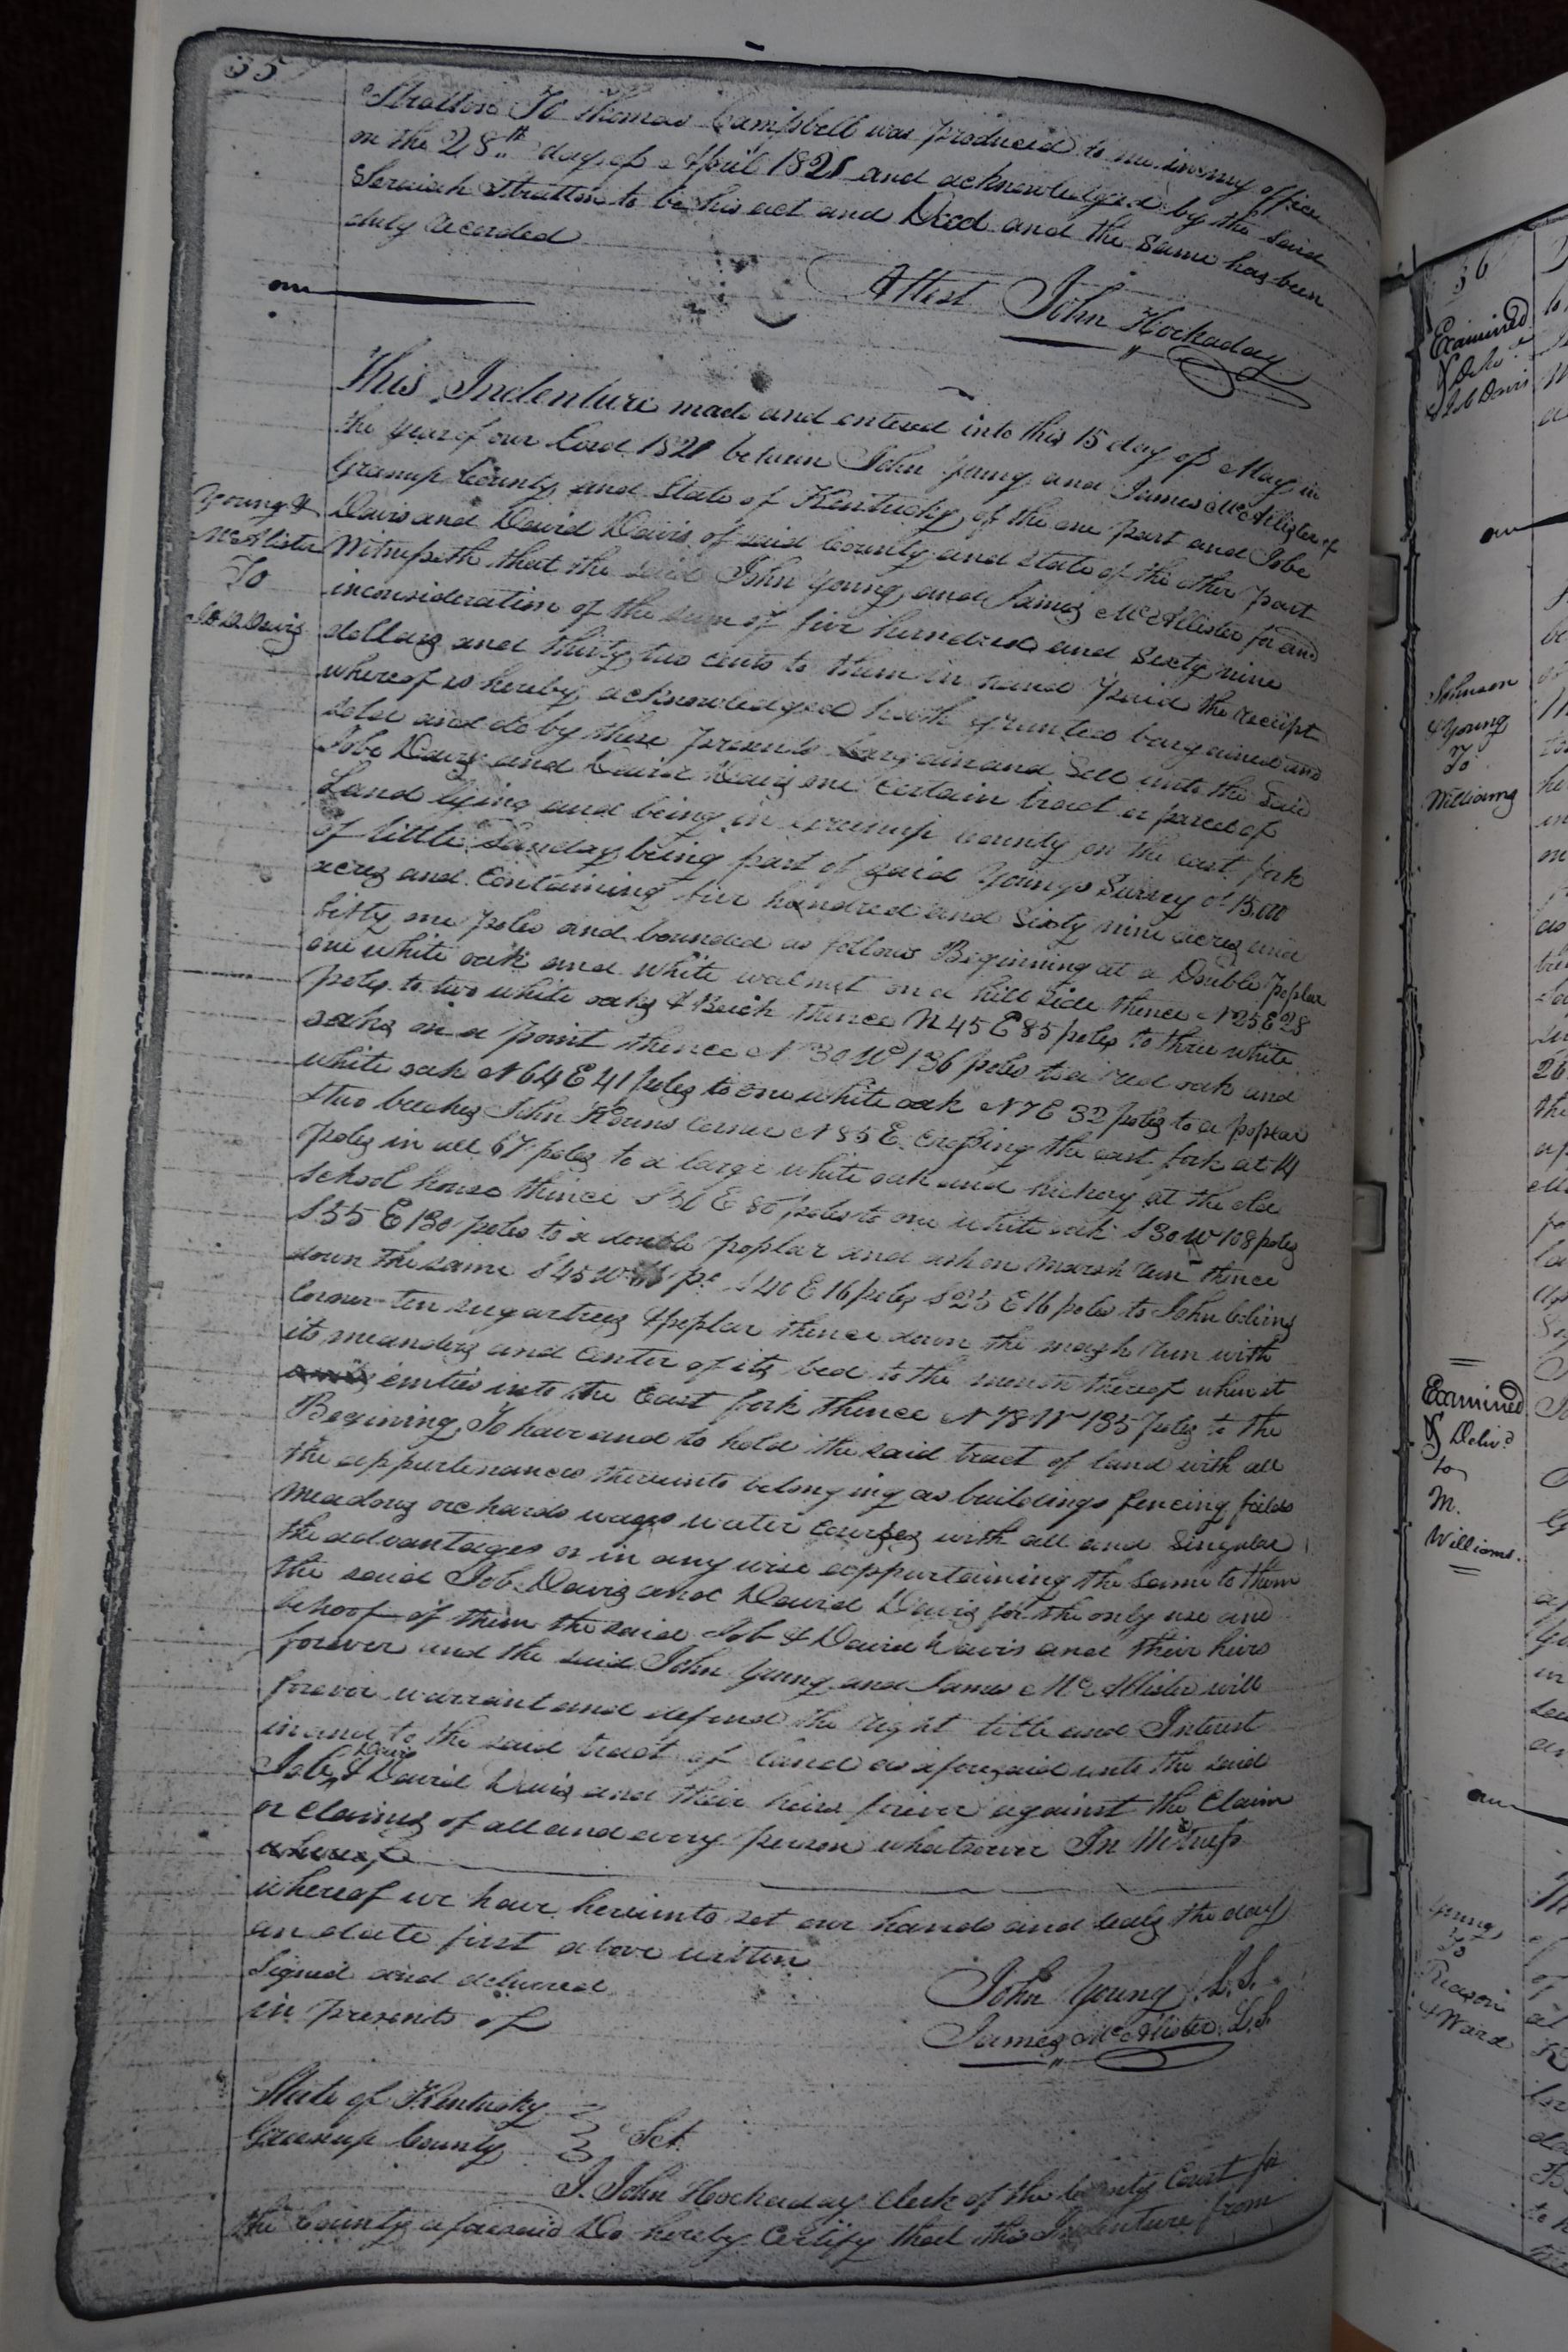 35
Stratton To Thomas Campbell was produced to me in my office
on the 28th day of April 1821 and acknowledged by the said
Seraiah Stratton to be his act and Deed and the same has been
duly recorded
Attest John Hockaday
This Indenture made and entered into this 15 day of May in
the year of our Lord 1821 between John Young and James McAllister of
Greenup County and State of Kentucky of the one part and Jobe
Young &
McAllister
To
J & D Davis
Davis and David Davis of said County and State of the other part
Witnesseth that the said John Young and James McAllister for and
inconsideration of the sum of five hundred and Sixty nine
dollars and thirty two cents to them in hand paid the receipt
whereof is hereby acknowledged hath granted bargained and
sold and do by these presents bargain and Sell unto the Said
Jobe Davis and David Davis one Certain tract or parcel of
Land lying and being in Greenup County on the east fork
of little Sanday being part of said Youngs Survey of 15,000
acres and Containing five hundred and Sixty nine acres and
fifty one poles and bounded as follows Beginning at a Double poplar
one white oak and white walnut on a hill side thence N25E 28
poles to two white oaks & Beich thence N45E 85 poles to three white
oaks on a point thence N30W 136 poles to a red oak and
white oak N64E 41 poles to one white oak N7E 32 poles to a poplar
& two beeches John Kouns corner N85E. Crossing the east fork at 14
poles in all 67 poles to a large white oak and hickory at the old
school house thence S36E 80 poles to one white oak S30W 108 poles
S55E 130 poles to a double poplar and ash on marsh run thence
down the same S45W ps S40E 16 poles S25E 16 poles to John
Corner ten sugartrees & poplar thence down the marsh run with
its meanders and center of its bed to the mouth thereof when it
emties into the East fork thence N78W 135 poles to the
Begining To have and to hold the said tract of land with all
the appurtenances thereunto belonging as buildings fencing fields
meadows orchards ways water courses with all and Singular
the advantages or in any wise appurtaining the same to them
the said Job Davis and David Davis for the only use and
behoof of them the said Job & David Davis and their heirs
forever and the said John Young and James McAllister will
forever warrant and defend the right title and Interest
in and to the said tract of land as aforesaid unto the said
Job Davis & David Davis and their heirs forever against the Claim
or claims of all and every person whatsoever In Witness
whereof we have hereunto set our hands and seals the day
an date first above written
Signed and delivered
in presents of
John Young L.S.
James McAllister L.S
State of Kentucky
Greenup County } Sct.
I. John Hockaday Clerk of the County Court for
the County aforesaid Do hereby Certify that this Indenture from
36
Examined
& Delvd
Job Davis
Johnson
& Young
To
Williams
Examined
& Delvd
to
M.
Williams.
Young
To
Reason
& Ward